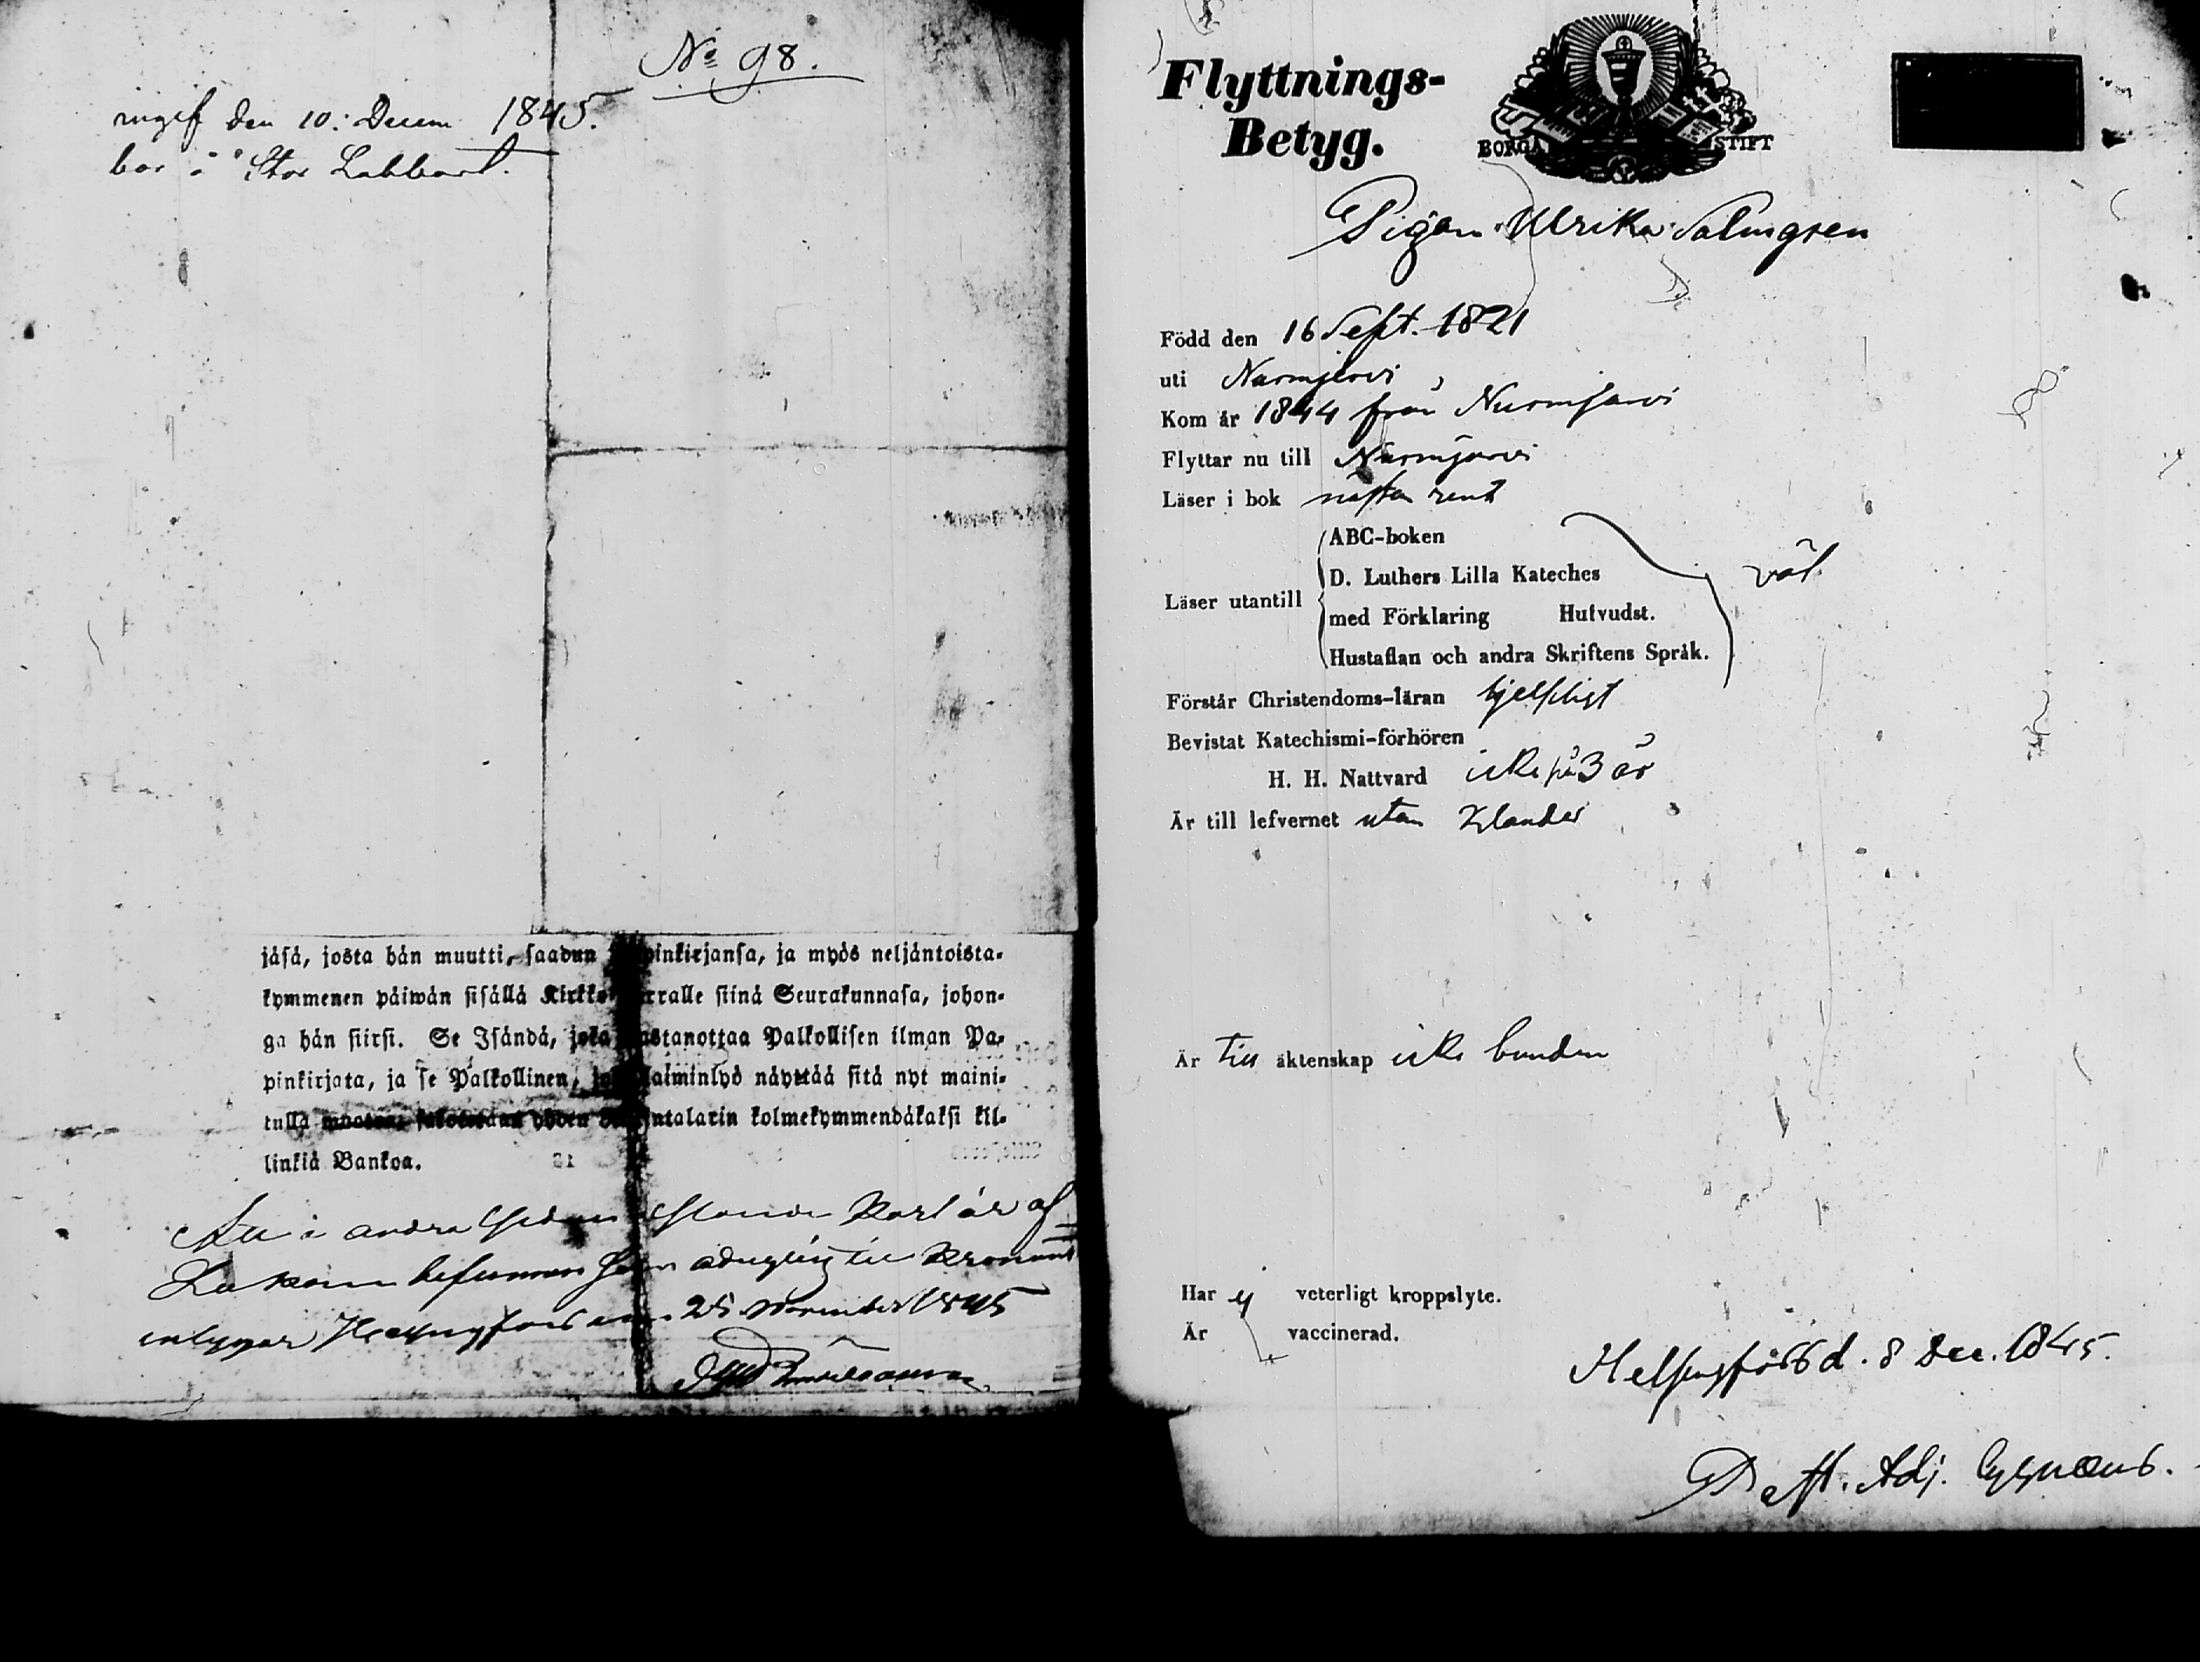 No 98.
den 10: Decem 1845.
bor å Stor Labbart.
jäsä, josta hän muutti, saadun pinkirjansa, ja myös neljäntoista-
kymmenen päiwän sisällä Kirkko rralle siinä Seurakunnasa, johon-
ga hän siirsi. Se Isändä, joka astanottaa Palkollisen ilman Pa-
pinkirjata, ja se Palkollinen, laiminlyö näyttää sitä nyt maini-
tulla yhden ntalarin kolmekymmendäkaksi kil-
linkiä Bankoa.
i andra sidan af
befunnen till
25 November 1845
Flyttnings-
Betyg.
BORGÅ STIFT
Pigan Ulrika Palmgren
Född den 16 Sept. 1821
uti Nurmjervi
Kom år 1844 från Nurmjärvi
Flyttar nu till Nurmjärvi
Läser i bok nästan rent
Läser utantill
ABC-boken
D. Luthers Lilla Kateches
med Förklaring Hufvudst.
Hustaflan och andra Skriftens Språk.
väl
Förstår Christendoms-läran hjelpligt
Bevistat Katechismi-förhören
H. H. Nattvard icke på 3 år
Är till lefvernet utan klander
Är till äktenskap icke bunden
Har ej veterligt kroppslyte.
Är vaccinerad.
Helsingfors d. 8 Dec. 1845.
Past. Adj. Cygnæus.